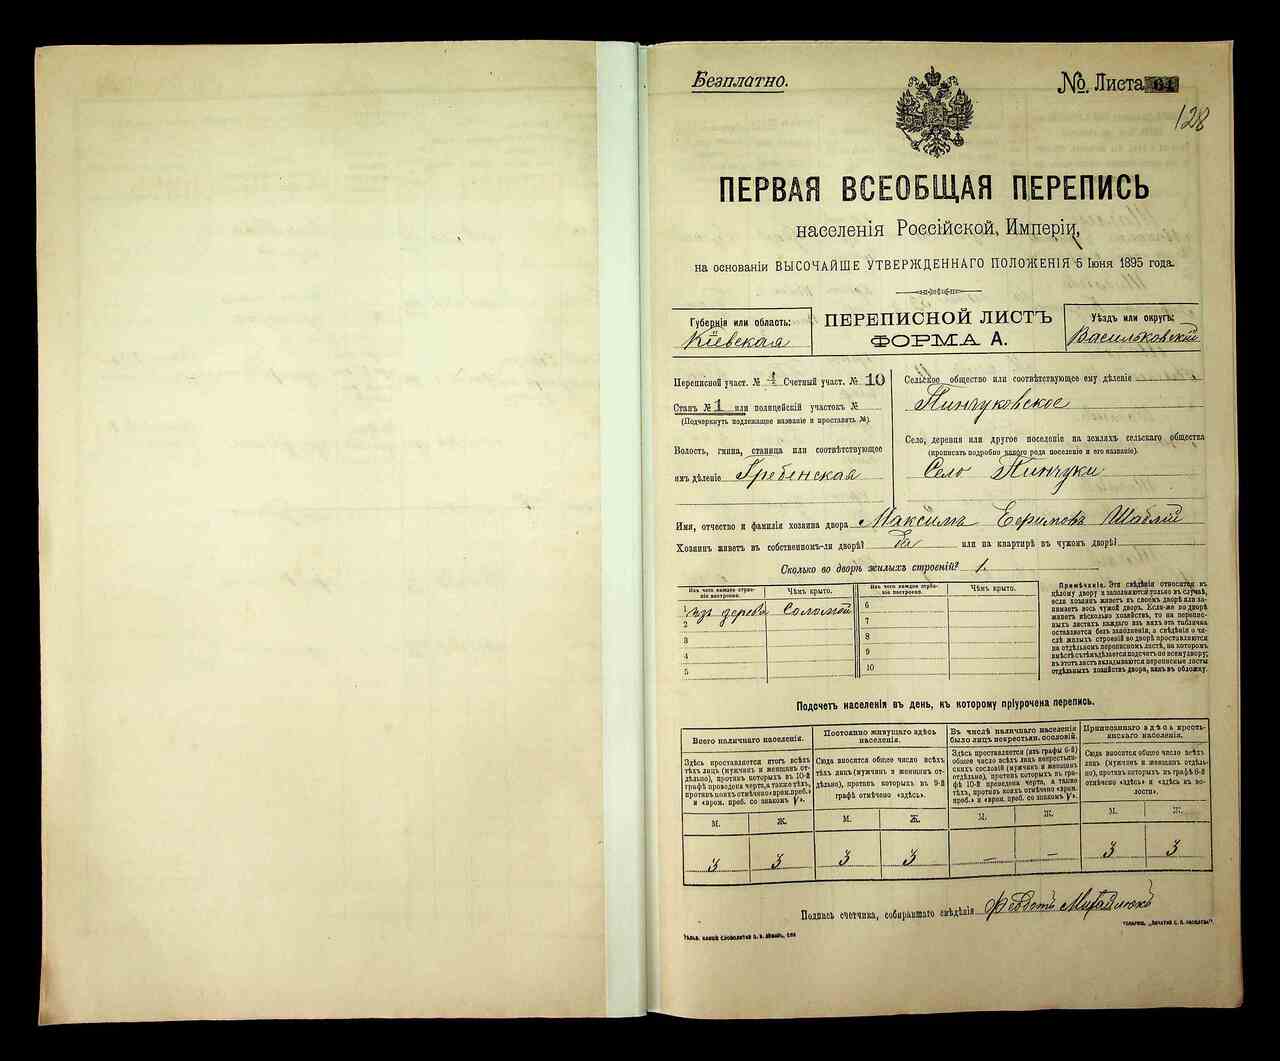 Безплатно.
№ Листа 64
128
ПЕРВАЯ ВСЕОБЩАЯ ПЕРЕПИСЬ
населенія Россійской Имперіи,
на основаніи ВЫСОЧАЙШЕ УТВЕРЖДЕННАГО ПОЛОЖЕНІЯ 5 Іюня 1895 года.
Губернія или область:
Кіевская
ПЕРЕПИСНОЙ ЛИСТЪ
ФОРМА А.
Уѣздъ или округъ:
Васильковскій
Переписной участ. № Счетный участ. № 10
Станъ № 1 или полицейскій участокъ №
(Подчеркнуть подлежащее названіе и проставить №).
Волость, гмина, станица или соотвѣтствующее
имъ дѣленіе Гребенская
Сельское общество или соотвѣтствующее ему дѣленіе
Пинчуковское
Село, деревня или другое поселеніе на земляхъ сельскаго общества
(прописать подробно какого рода поселеніе и его названіе).
Село Пинчуки
Имя, отчество и фамилія хозяина двора Максимъ Ефимовъ Шаблій
Хозяинъ живетъ въ собственномъ-ли дворѣ? да или на квартирѣ въ чужомъ дворѣ?
Сколько во дворѣ жилыхъ строеній? 1.
Изъ чего каждое строеніе построено.
Чѣмъ крыто.
Изъ чего каждое строеніе построено.
Чѣмъ крыто.
1 изъ дерева Соломой
2
3
4
5
6
7
8
9
10
Примѣчаніе. Эти свѣдѣнія относятся къ
цѣлому двору и заполняются только въ случаѣ,
если хозяинъ живетъ въ своемъ дворѣ или занимаетъ
весь чужой дворъ. Если-же во дворѣ
живетъ нѣсколько хозяйствъ, то на переписныхъ
листахъ каждаго изъ нихъ эта табличка
оставляется безъ заполненія, а свѣдѣнія о числѣ
жилыхъ строеній во дворѣ проставляются
на отдѣльномъ переписномъ листѣ, на которомъ
вмѣстѣ съ тѣмъ дѣлается подсчетъ по всему двору;
въ этотъ листъ вкладываются переписные листы
отдѣльныхъ хозяйствъ двора, какъ въ обложку.
Подсчетъ населенія въ день, къ которому пріурочена перепись.
Всего наличнаго населенія.
Здѣсь проставляется итогъ всѣхъ
тѣхъ лицъ (мужчинъ и женщинъ отдѣльно),
противъ которыхъ въ 10-й
графѣ проведена черта, а также тѣхъ,
противъ коихъ отмѣчено «врем. преб.»
и «врем. преб. со знакомъ V».
Постоянно живущаго здѣсь
населенія.
Сюда вносится общее число всѣхъ
тѣхъ лицъ (мужчинъ и женщинъ отдѣльно),
противъ которыхъ въ 9-й
графѣ отмѣчено «здѣсь».
Въ числѣ наличнаго населенія
было лицъ некрестьян. сословій.
Здѣсь проставляется (изъ графы 6-й)
общее число всѣхъ лицъ некрестьянскихъ
сословій (мужчинъ и женщинъ
отдѣльно), противъ которыхъ въ графѣ
10-й проведена черта, а также
тѣхъ, противъ коихъ отмѣчено «врем.
преб.» и «врем. преб. со знакомъ V».
Приписаннаго здѣсь крестьянскаго
населенія.
Сюда вносится общее число всѣхъ
лицъ (мужчинъ и женщинъ отдѣльно),
противъ которыхъ въ графѣ 8-й
отмѣчено «здѣсь» и «здѣсь въ волости».
М. Ж. М. Ж. М. Ж. М. Ж.
3 3 3 3 — — 3 3
Подпись счетчика, собиравшаго свѣдѣнія Федотъ Михайлюкъ